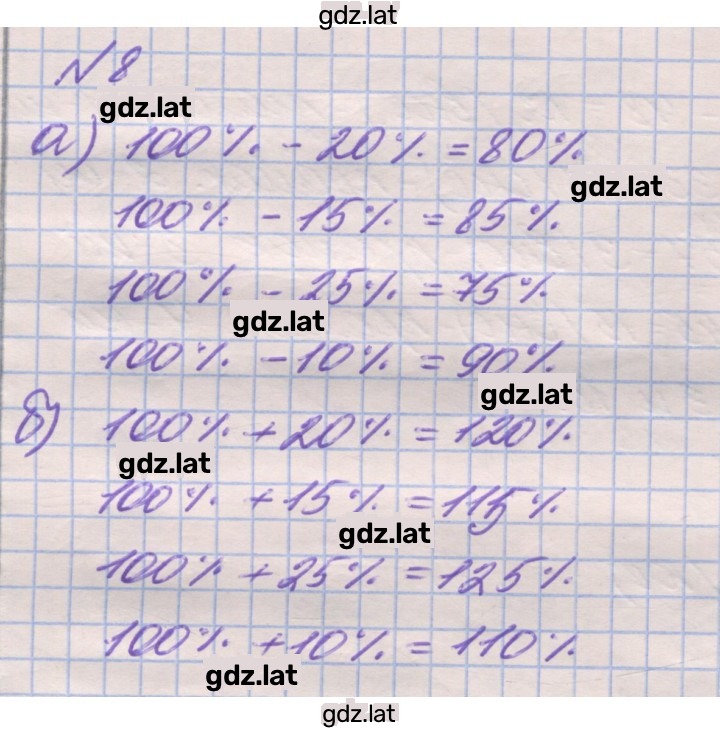 gdz.lat
N 8
gdz.lat
а) 100% - 20% = 80%
gdz.lat
100% - 15% = 85%
100% - 25% = 75%
gdz.lat
100% - 10% = 90%
gdz.lat
б) 100% + 20% = 120%
gdz.lat
100% + 15% = 115%
gdz.lat
100% + 25% = 125%
100% + 10% = 110%
gdz.lat
gdz.lat